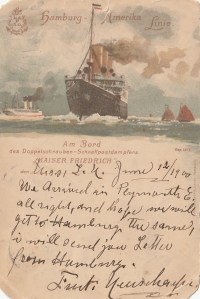 Hamburg - Amerika Linie
Am Bord
des Doppelschrauben-Schnellpostdampfers
"KAISER FRIEDRICH"
June 12/1900
We Arrived in Plymouth E.
all right, and hope we will
get to Hamburg the same,
i will send you Letter
from Hamburg.